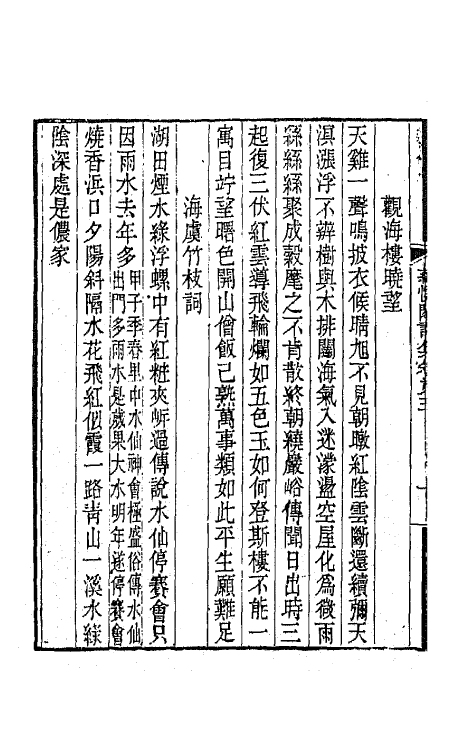 觀海樓曉望
天雞一聲鳴披衣候晴旭不見朝暾紅陰雲斷還續彌天
溟漲浮不辨樹與木排闥海氣入迷濛盪空屋化為微雨
絲絲絲聚成縠麾之不肯散終朝繞巖峪傳聞日出時三
起復三伏紅雲導飛輪爛如五色玉如何登斯樓不能一
寓目竚望曙色開山僧飯已熟萬事類如此平生願難足
海虞竹枝詞
湖田煙水綠浮螺中有紅粧夾岍過傳說水仙停賽會只
因雨水去年多甲子季春里中水仙神會極盛俗傳水仙
出門多雨水是歲果大水明年遂停賽會
燒香浜口夕陽斜隔水花飛紅似霞一路靑山一溪水綠
陰深處是儂家